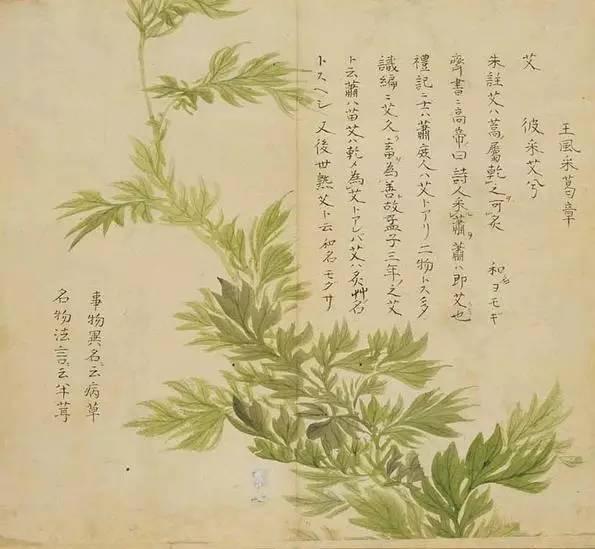 王風采葛章
艾 彼采艾兮
朱註艾ハ蒿屬乾之可炙 和名ヨモギ
齊書ニ高帝曰詩人采蕭蕭ハ即艾也
禮記ニ士ハ蕭庶人ハ艾トアリ二物トス多
識編ニ艾久畜為善故孟子三年之艾
ト云蕭ハ苗艾ハ乾メ為艾トアレバ艾ハ炙艸名
トスヘシ又後世熟艾ト云和名モグサ
事物異名ニ云病草
名物法言ニ云